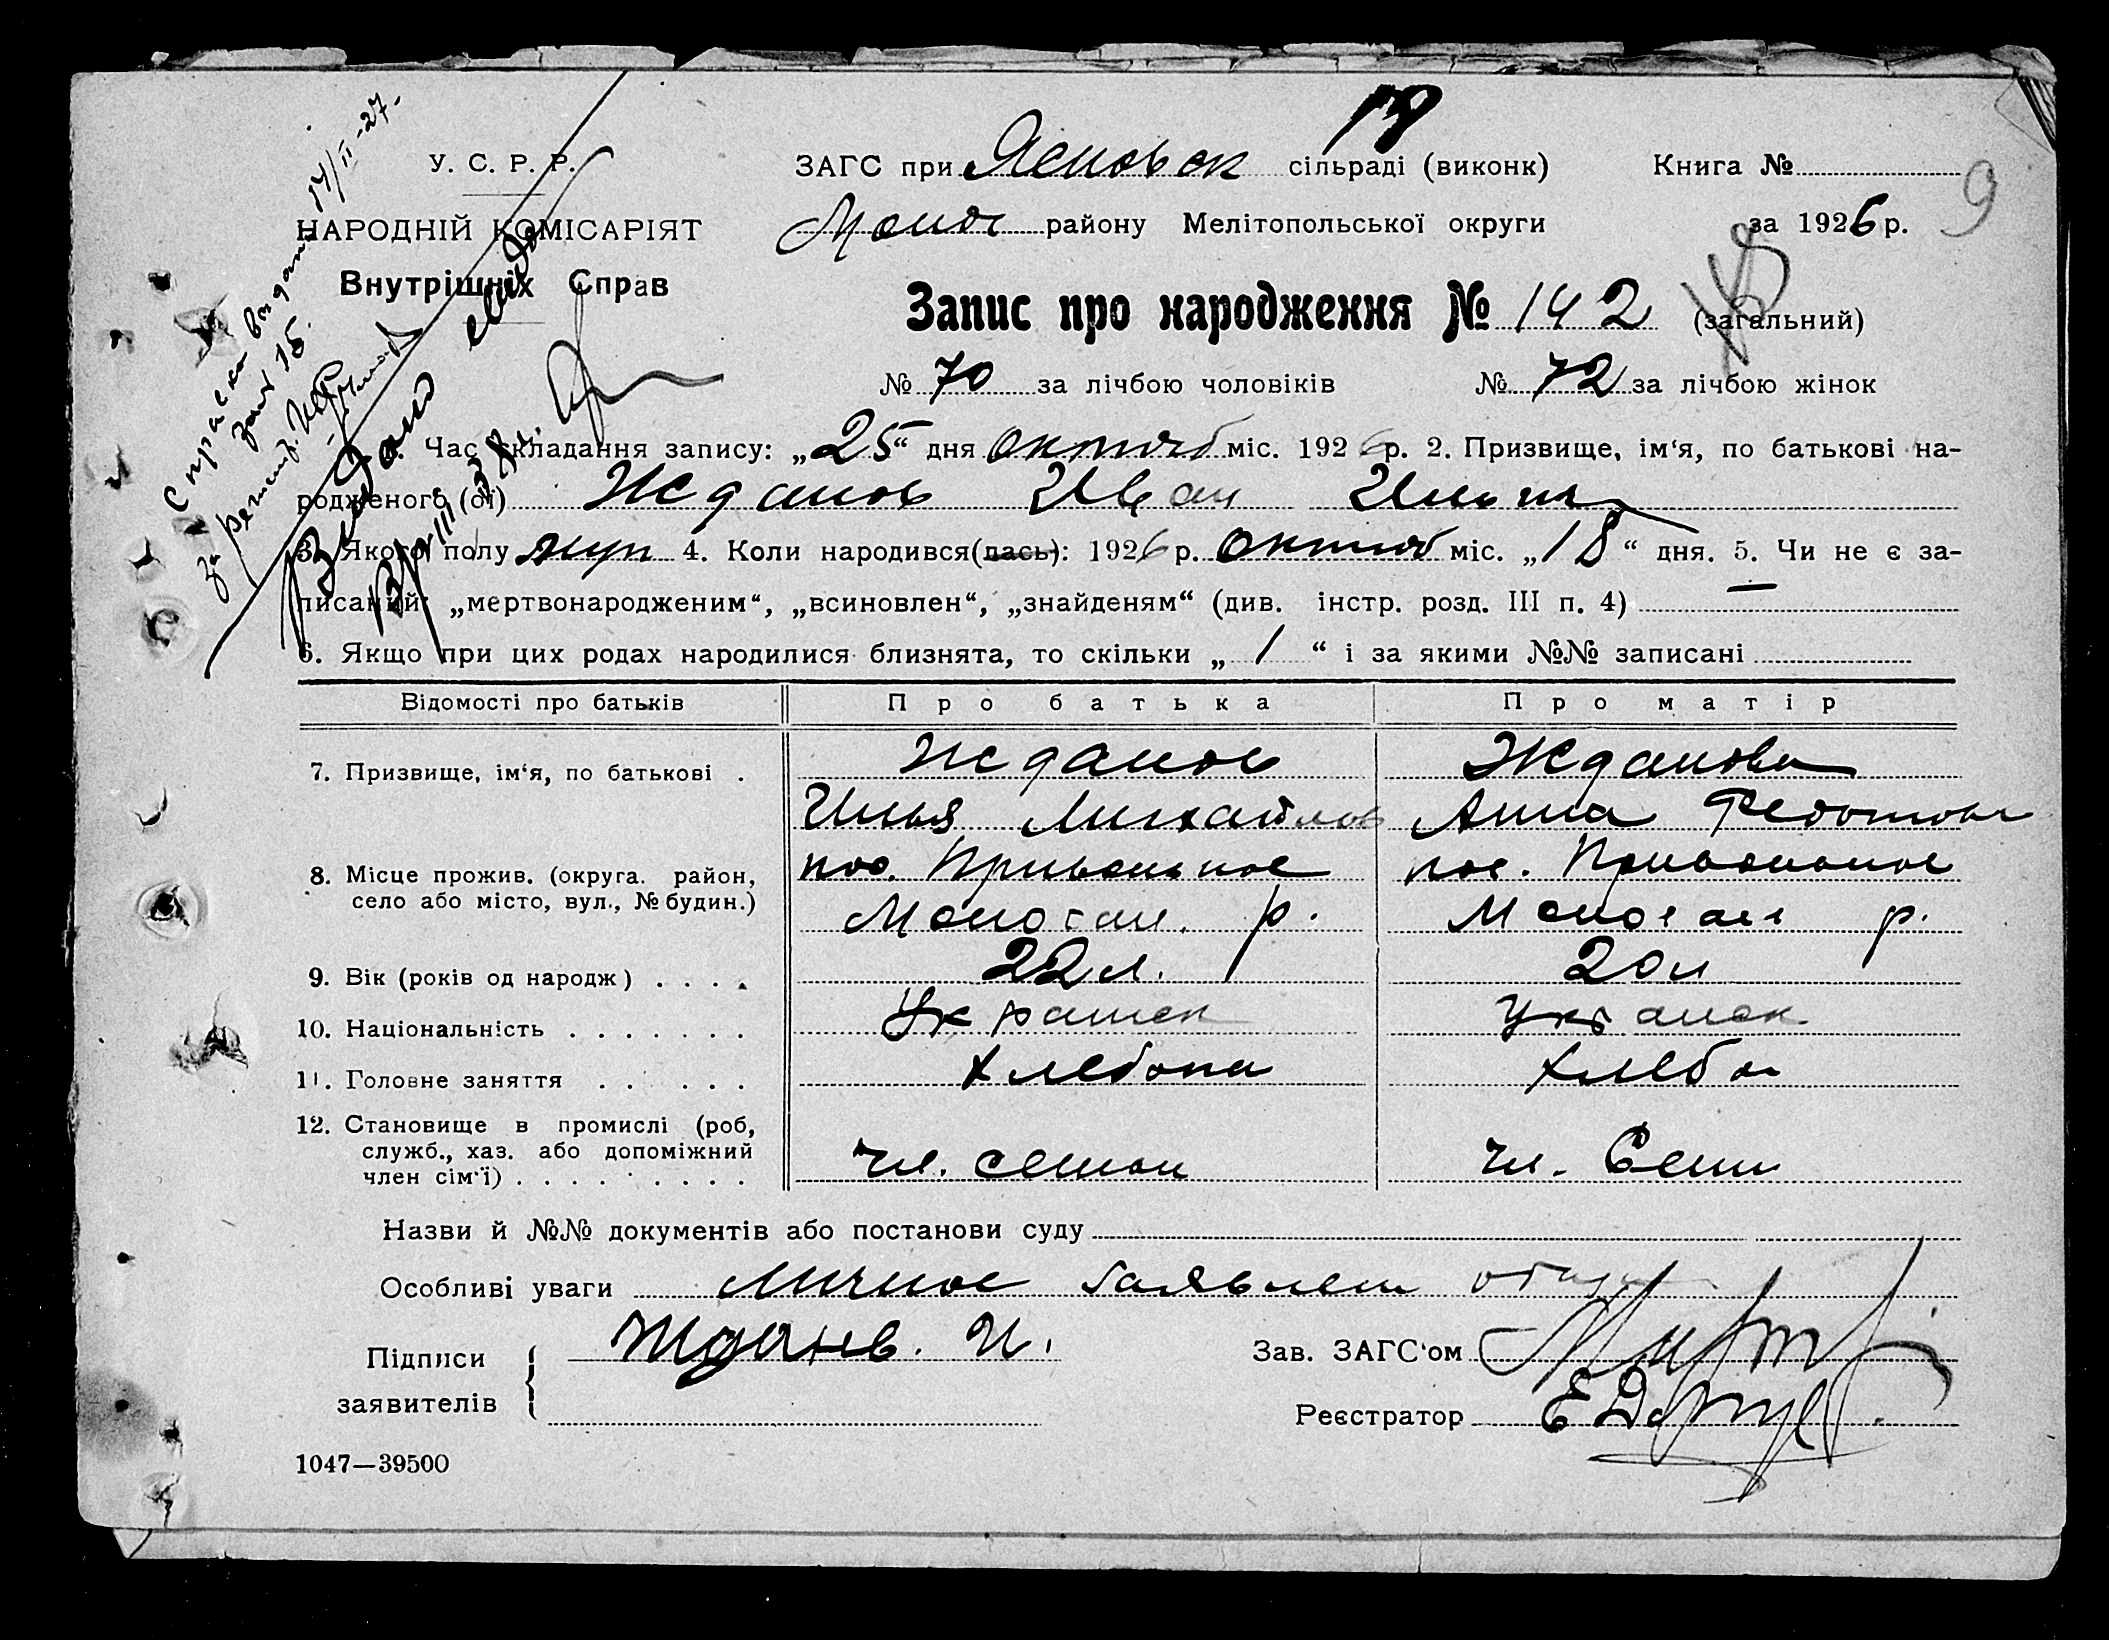 У. С. Р. Р.
НАРОДНІЙ КОМІСАРІЯТ
Внутрішніх Справ
Справка выдана 14/II-27.
за № 15.
Видано
18
ЗАГС при Ясновск сільраді (виконк) Книга №
9
району Мелітопольської округи за 1926 р.
Запис про народження № 142 (загальний)
№ 70 за лічбою чоловіків № 72 за лічбою жінок
Час складання запису: „25“ дня октяб міс. 1926 р. 2. Призвище, ім‘я, по батькові на-
родженого (ої) Жданов Иван Ильич
3. Якого полу муж 4. Коли народився(лась): 1926 р. октяб міс. „18“ дня. 5. Чи не є за-
писаний: „мертвонародженим“, „всиновлен“, „знайденям“ (див. інстр. розд. III п. 4) —
6. Якщо при цих родах народилися близнята, то скільки „ 1 “ і за якими №№ записані
Відомості про батьків Про батька Про матір
7. Призвище, ім‘я, по батькові . Жданов Жданова
Илья Михайлов Анна Федотовн
8. Місце прожив. (округа. район, пос. Привольное пос. Привольное
село або місто, вул., № будин.) р. р.
9. Вік (років од народж) . . . . 22 л. 20 л
10. Національність . . . . . . . Украинск Украинск
11. Головне заняття . . . . . . Хлебопа Хлебо
12. Становище в промислі (роб,
служб., хаз. або допоміжний чл. семьи чл. Семи
член сім‘ї) . . . . . . . . .
Назви й №№ документів або постанови суду
Особливі уваги Личное заявлен отца
Підписи Ждaнв. И. Зав. ЗАГС‘ом
заявителів Реєстратор
1047—39500